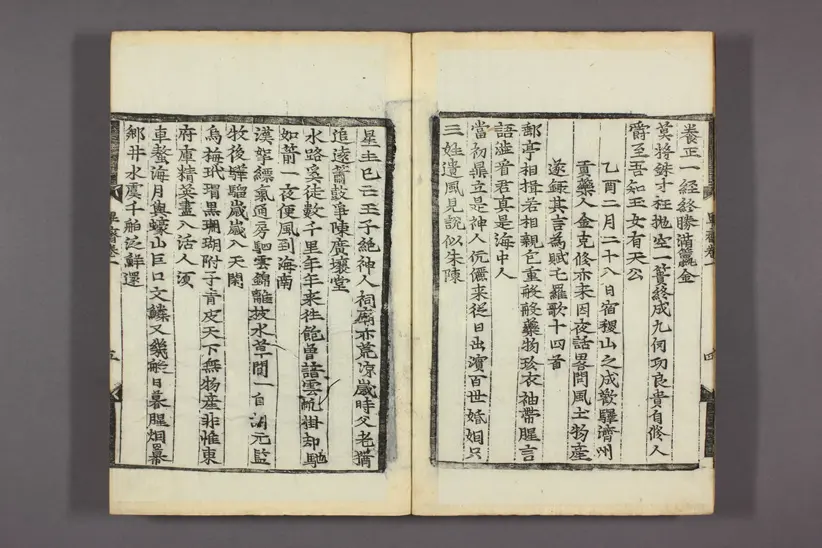 養正一經終勝滿籯金
莫將銖寸枉抛空一簣終成九仞功良貴自脩人
爵至吾知玉女有天公
乙酉二月二十八日宿稷山之成歡驛濟州
貢藥人金克脩亦来因夜話畧問風土物產
遂録其言為賦乇羅歌十四首
郵亭相揖若相親包重般般藥物珍衣袖帶腥言
語澁看君真是海中人
當初鼎立是神人伉儷来從日出濱百世婚姻只
三姓遺風見說似朱陳
四
星主已亡王子絶神人祠廟亦荒凉歲時父老猶
追遠簫鼓爭陳廣壤堂
水路奚徒數千里年年来往飽曾諳雲帆掛却馳
如箭一夜便風到海南
漢挐縹氣通房駟雲錦離披水草間一自胡元監
牧後驊騮歲歲入天閑
烏梅玳瑁黑珊瑚附子青皮天下無物產非惟東
府庫精英盡入活人須
車螯海月與蠔山巨口文鱗又幾般日暮腥烟羃
鄉井水虞千舶泛鮮還
五